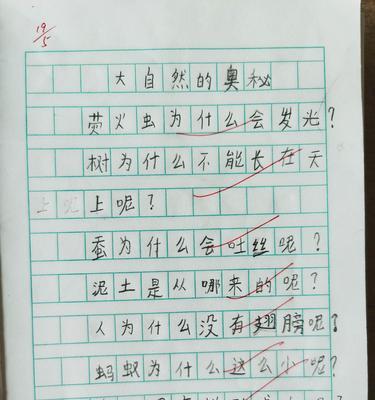 19/5
大自然的奥秘
萤火虫为什么会发光?
树为什么不能长在天
上呢上呢?
蚕为什么会吐丝呢?
泥土是从哪来的呢?
人为什么没有翅膀呢?
蚂蚁为什么这么小呢?